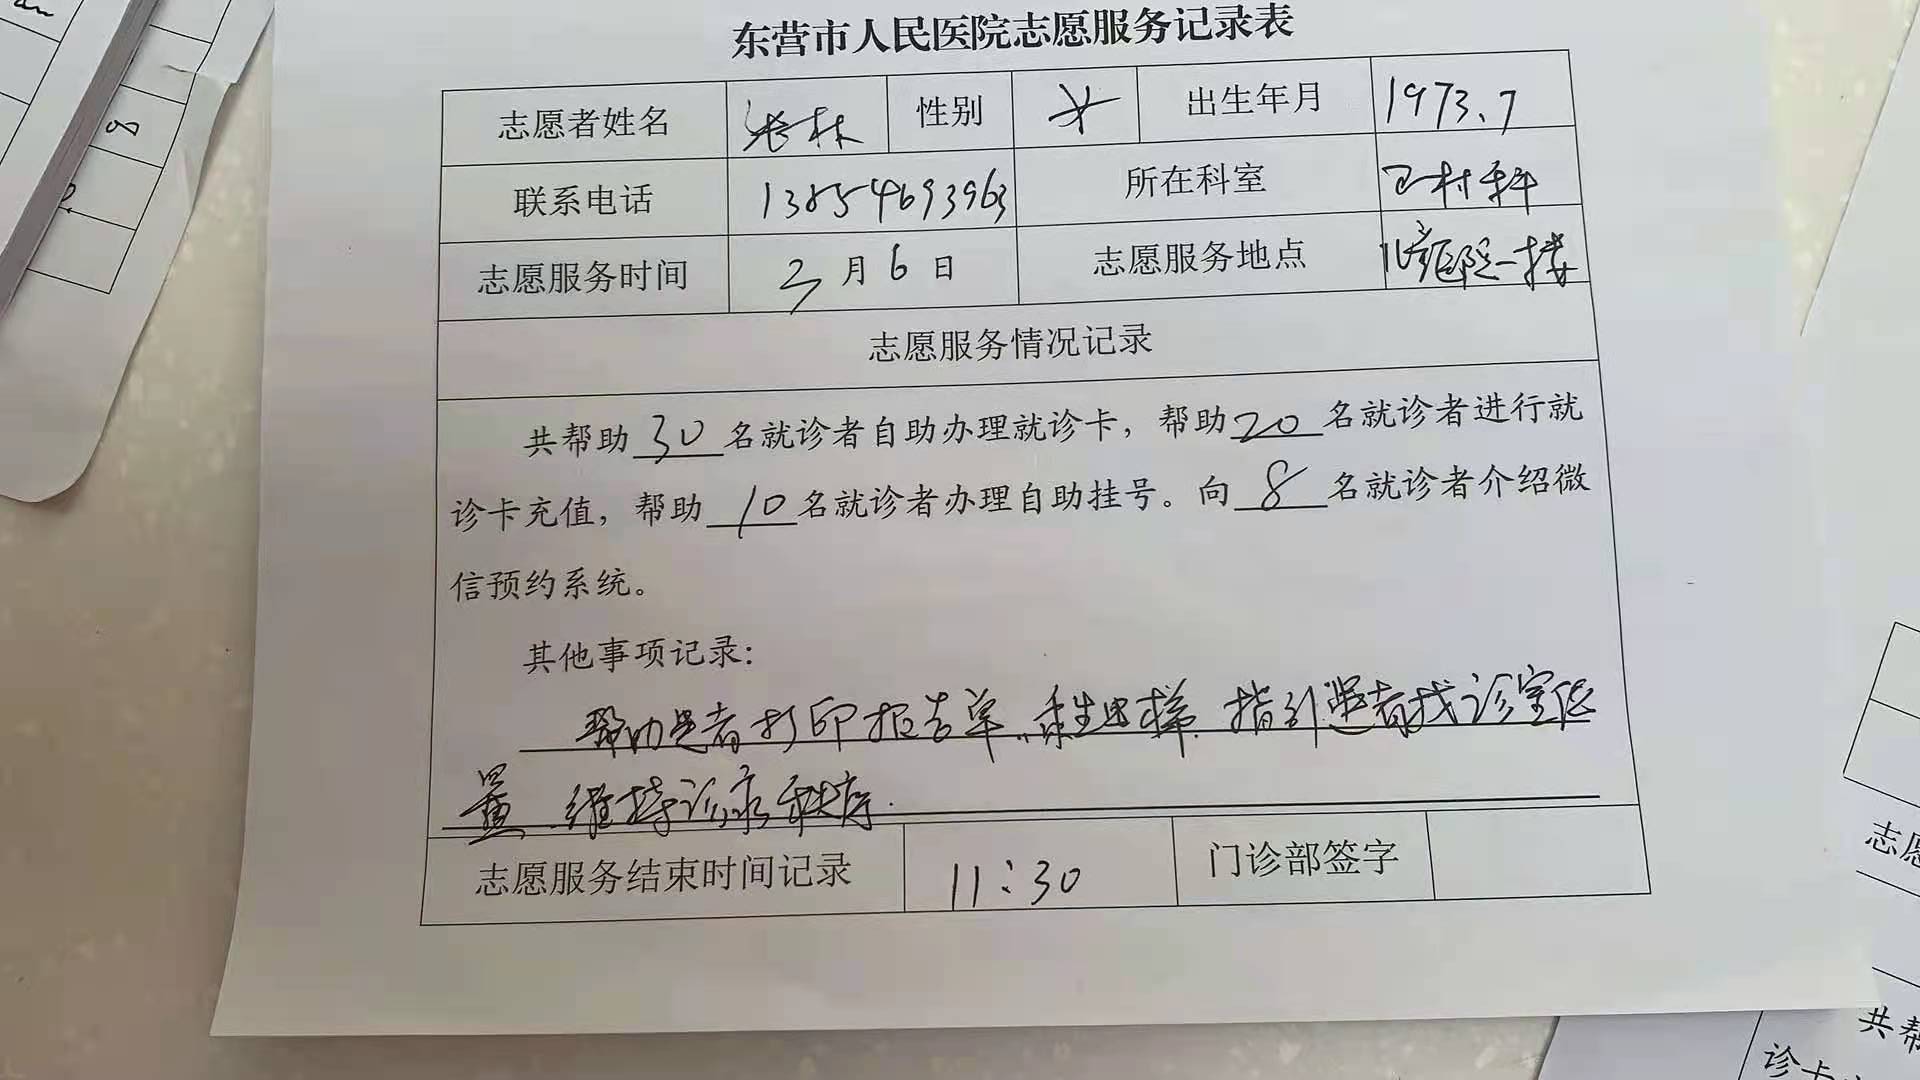 东营市人民医院志愿服务记录表
志愿者姓名 性别 女 出生年月 1973.7
联系电话 13854693963 所在科室
志愿服务时间 3月6日 志愿服务地点 儿童医院一楼
志愿服务情况记录
共帮助30名就诊者自助办理就诊卡，帮助20名就诊者进行就
诊卡充值，帮助10名就诊者办理自助挂号。向8名就诊者介绍微
信预约系统。
其他事项记录：
帮助患者打印报告单、乘坐电梯、指引患者找诊室位
置 维持诊室秩序.
志愿服务结束时间记录 11:30 门诊部签字
8
志愿
共帮
诊卡